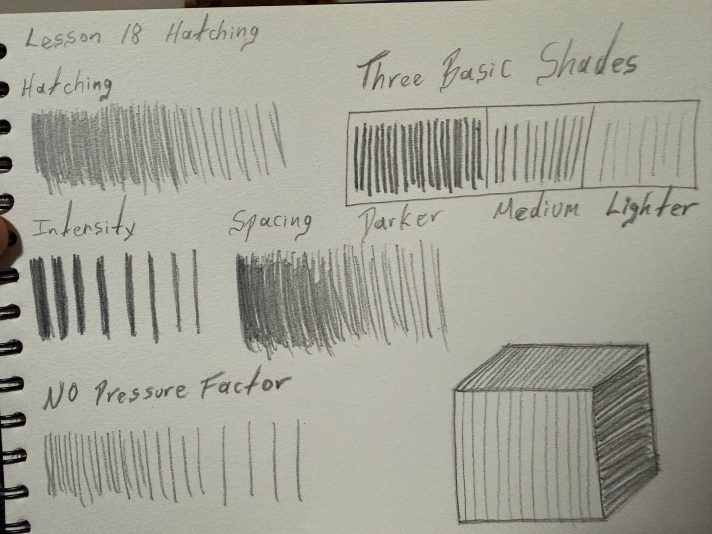 Lesson 18 Hatching
Hatching
Three Basic Shades
Darker Medium Lighter
Intensity
Spacing
NO Pressure Factor